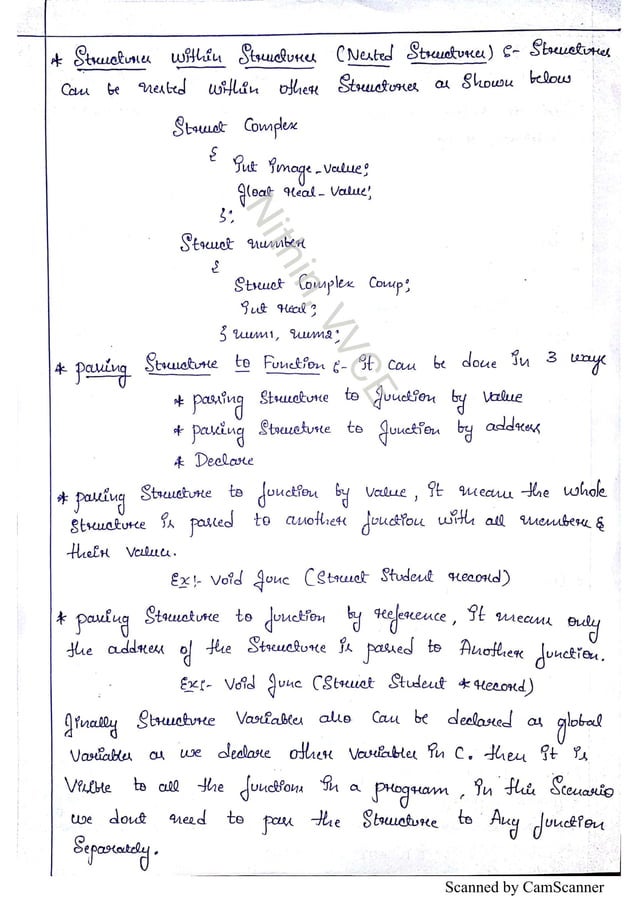 * Structures within Structures (Nested Structures) :- Structures
Can be nested within other Structures as Shown below
Struct Complex
{
Int Image_value;
float real_value;
};
Struct number
{
Struct Complex Comp;
Int real;
} num1, num2;
* passing Structure to Function :- it can be done in 3 ways
* passing Structure to function by value
* passing Structure to function by address
* Declare
* passing Structure to function by value, it means the whole
Structure is passed to another function with all members &
their values.
Ex:- Void func (Struct Student record)
* passing Structure to function by reference, It means only
the address of the Structure is passed to Another function.
Ex:- Void func (Struct Student *record)
finally Structure Variables also Can be declared as global
Variables as we declare other Variables in C. then it is
Visible to all the functions in a program, in this Scenario
we dont need to pass the Structure to Any function
Separately.
Nithin, VVCE
Scanned by CamScanner